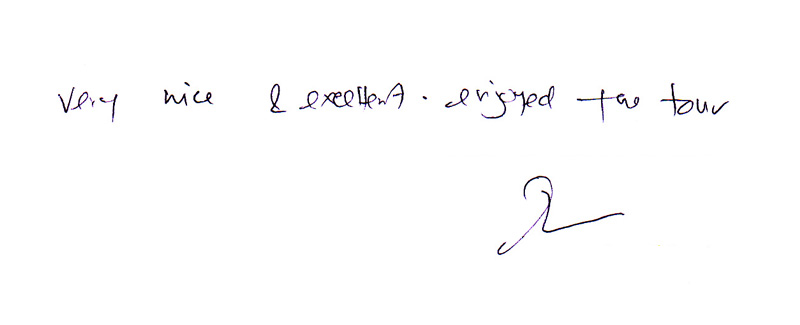 Very nice & excellent. enjoyed the tour